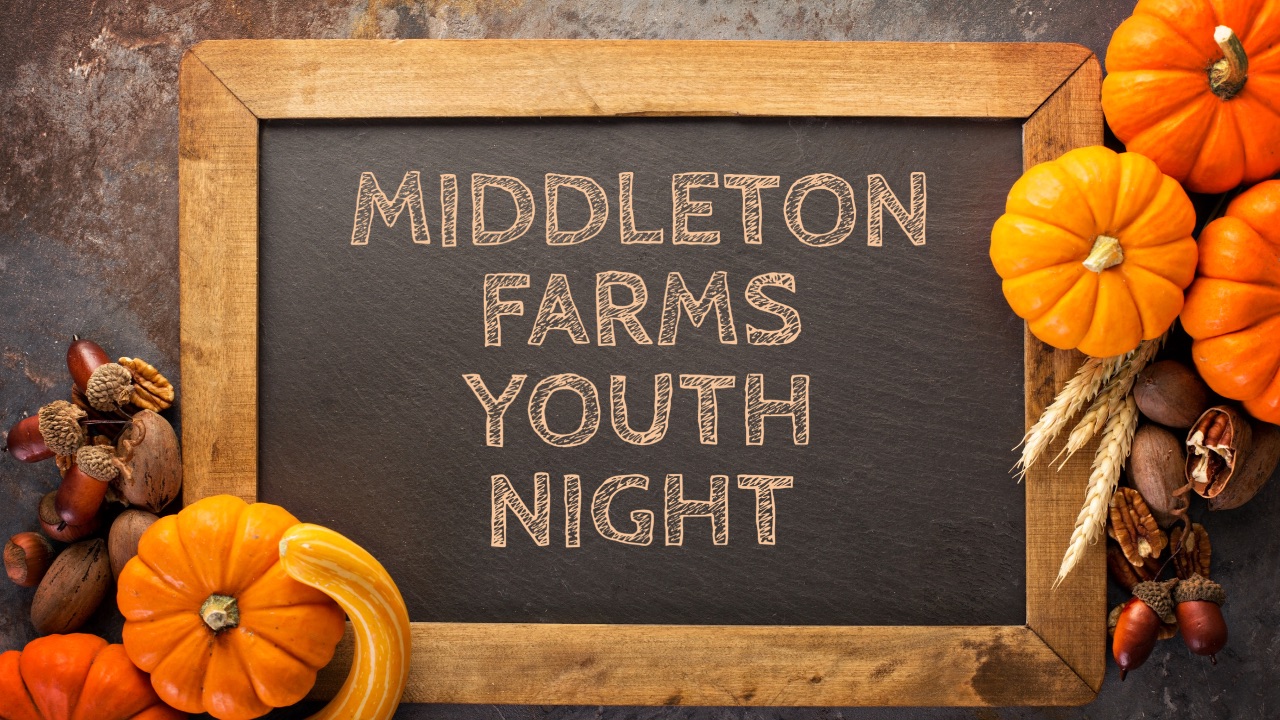 MIDDLETON
FARMS
YOUTH
NIGHT